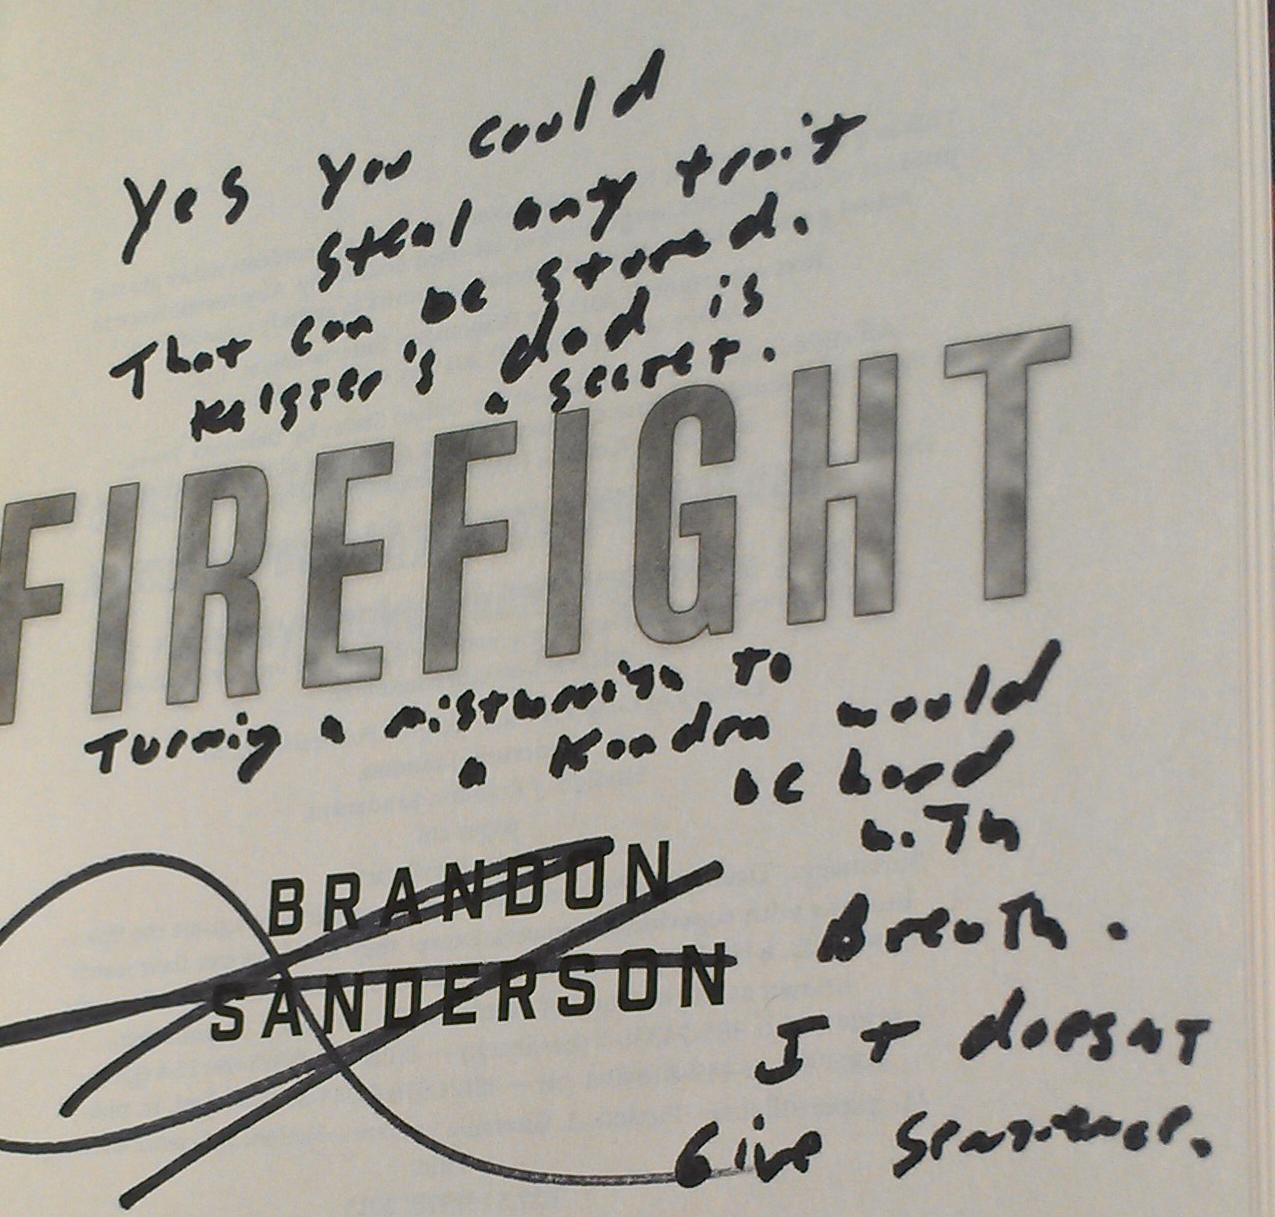 Yes you could
steal any trait
That can be stored.
Kelsier's dad is
a secret.
FIREFIGHT
Turning a mistwraith to
a Kandra would
be hard
with
Breath.
It doesnt
Give Sentience.
BRANDON
SANDERSON